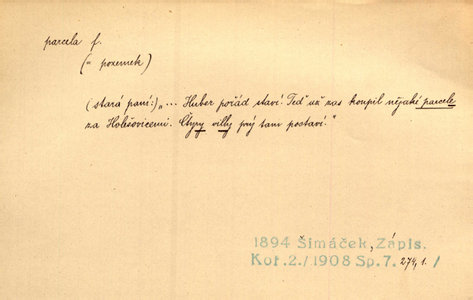 parcela f.
(= pozemek)
(stará paní:) „... Huber pořád staví! Teď už zas koupil nějaké parcele
za Holešovicemi. Čtyry villy prý tam postaví.“
1894 Šimáček, Zápis.
Kot.2./1908 Sp.7. 274,1./